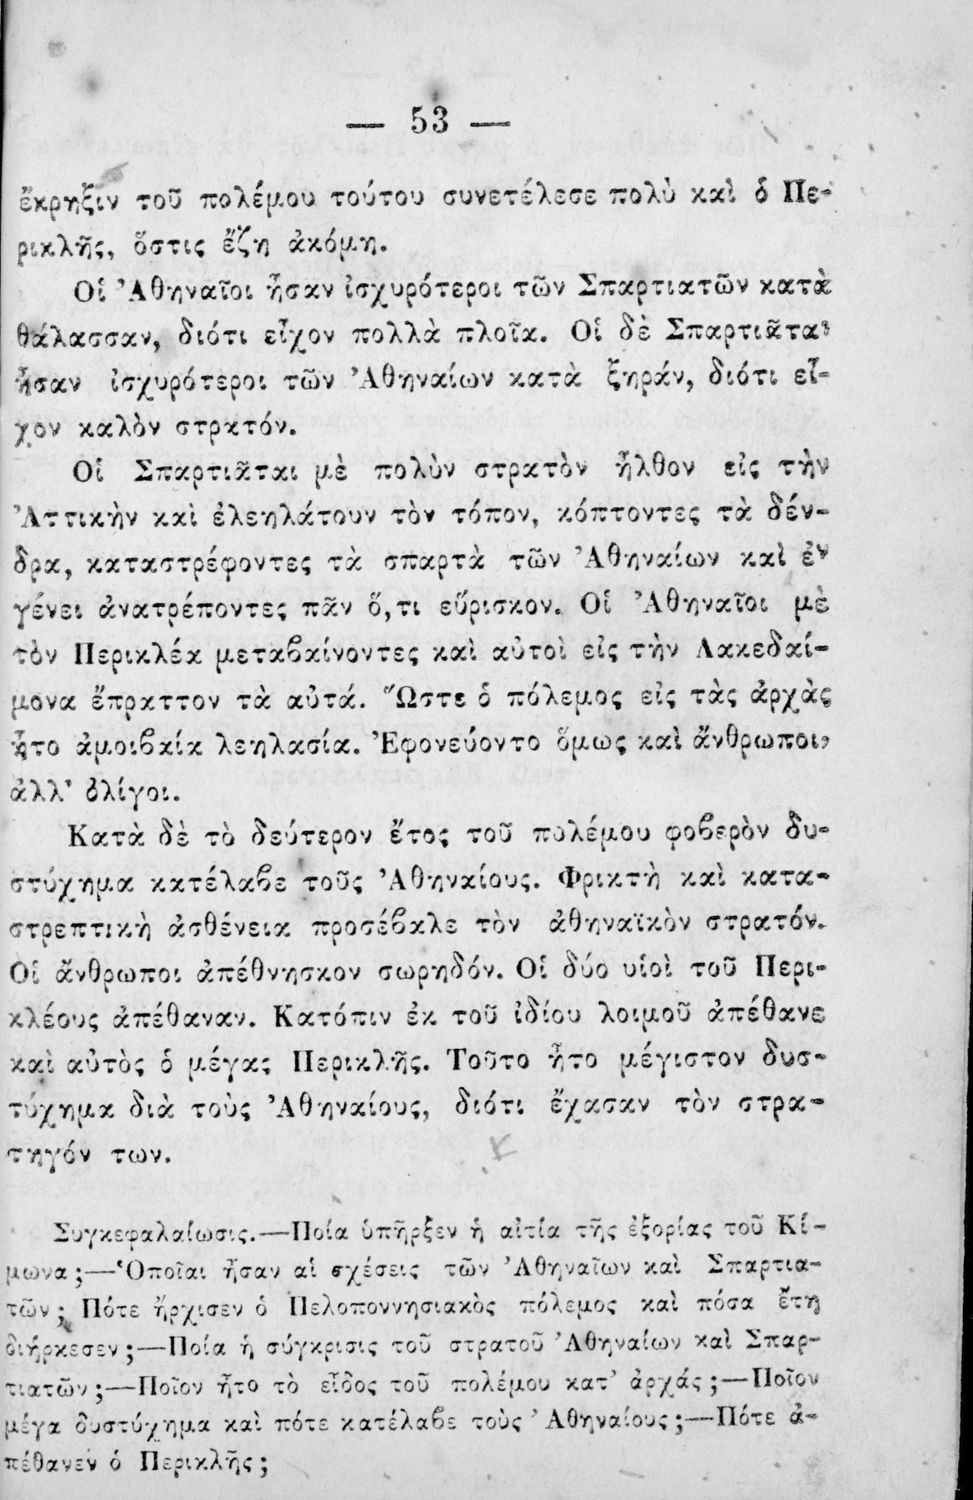 — 53 —
ἔκρηξιν τοῦ πολέμου τούτου συνετέλεσε πολὺ καὶ ὁ Πε-
ρικλῆς, ὅστις ἔζη ἀκόμη.
Οἱ Ἀθηναῖοι ἦσαν ἰσχυρότεροι τῶν Σπαρτιατῶν κατὰ
θάλασσαν, διότι εἶχον πολλὰ πλοῖα. Οἱ δὲ Σπαρτιᾶται
ἦσαν ἰσχυρότεροι τῶν Ἀθηναίων κατὰ ξηράν, διότι εἶ-
χον καλὸν στρατόν.
Οἱ Σπαρτιᾶται μὲ πολὺν στρατὸν ἦλθον εἰς τὴν
Ἀττικὴν καὶ ἐλεηλάτουν τὸν τόπον, κόπτοντες τὰ δέν-
δρα, καταστρέφοντες τὰ σπαρτὰ τῶν Ἀθηναίων καὶ ἐν
γένει ἀνατρέποντες πᾶν ὅ,τι εὕρισκον. Οἱ Ἀθηναῖοι μὲ
τὸν Περικλέα μεταβαίνοντες καὶ αὐτοὶ εἰς τὴν Λακεδαί-
μονα ἔπραττον τὰ αὐτά. Ὥστε ὁ πόλεμος εἰς τὰς ἀρχὰς
ἦτο ἀμοιβαία λεηλασία. Ἐφονεύοντο ὅμως καὶ ἄνθρωποι,
ἀλλ' ὀλίγοι.
Κατὰ δὲ τὸ δεύτερον ἔτος τοῦ πολέμου φοβερὸν δυ-
στύχημα κατέλαβε τοῦς Ἀθηναίους. Φρικτὴ καὶ κατα-
στρεπτικὴ ἀσθένεια προσέβαλε τὸν ἀθηναϊκὸν στρατόν.
Οἱ ἄνθρωποι ἀπέθνησκον σωρηδόν. Οἱ δύο υἱοὶ τοῦ Περι-
κλέους ἀπέθαναν. Κατόπιν ἐκ τοῦ ἰδίου λοιμοῦ ἀπέθανε
καὶ αὐτὸς ὁ μέγας Περικλῆς. Τοῦτο ἦτο μέγιστον δυσ-
τύχημα διὰ τοὺς Ἀθηναίους, διότι ἔχασαν τὸν στρα-
τηγόν των.
Συγκεφαλαίωσις.—Ποία ὑπῆρξεν ἡ αἰτία τῆς ἐξορίας τοῦ Κί-
μωνα;—Ὁποῖαι ἦσαν αἱ σχέσεις τῶν Ἀθηναῖων καὶ Σπαρτια-
τῶν; Πότε ἤρχισεν ὁ Πελοποννησιακὸς πόλεμος καὶ πόσα ἔτη
διήρκεσεν;—Ποία ἡ σύγκρισις τοῦ στρατοῦ Ἀθηναίων καὶ Σπαρ-
τιατῶν;—Ποῖον ἦτο τὸ εἶδος τοῦ πολέμου κατ' ἀρχάς;—Ποῖον
μέγα δυστύχημα καὶ πότε κατέλαβε τοὺς Ἀθηναίους;—Πότε ἀ-
πέθανεν ὁ Περικλῆς;